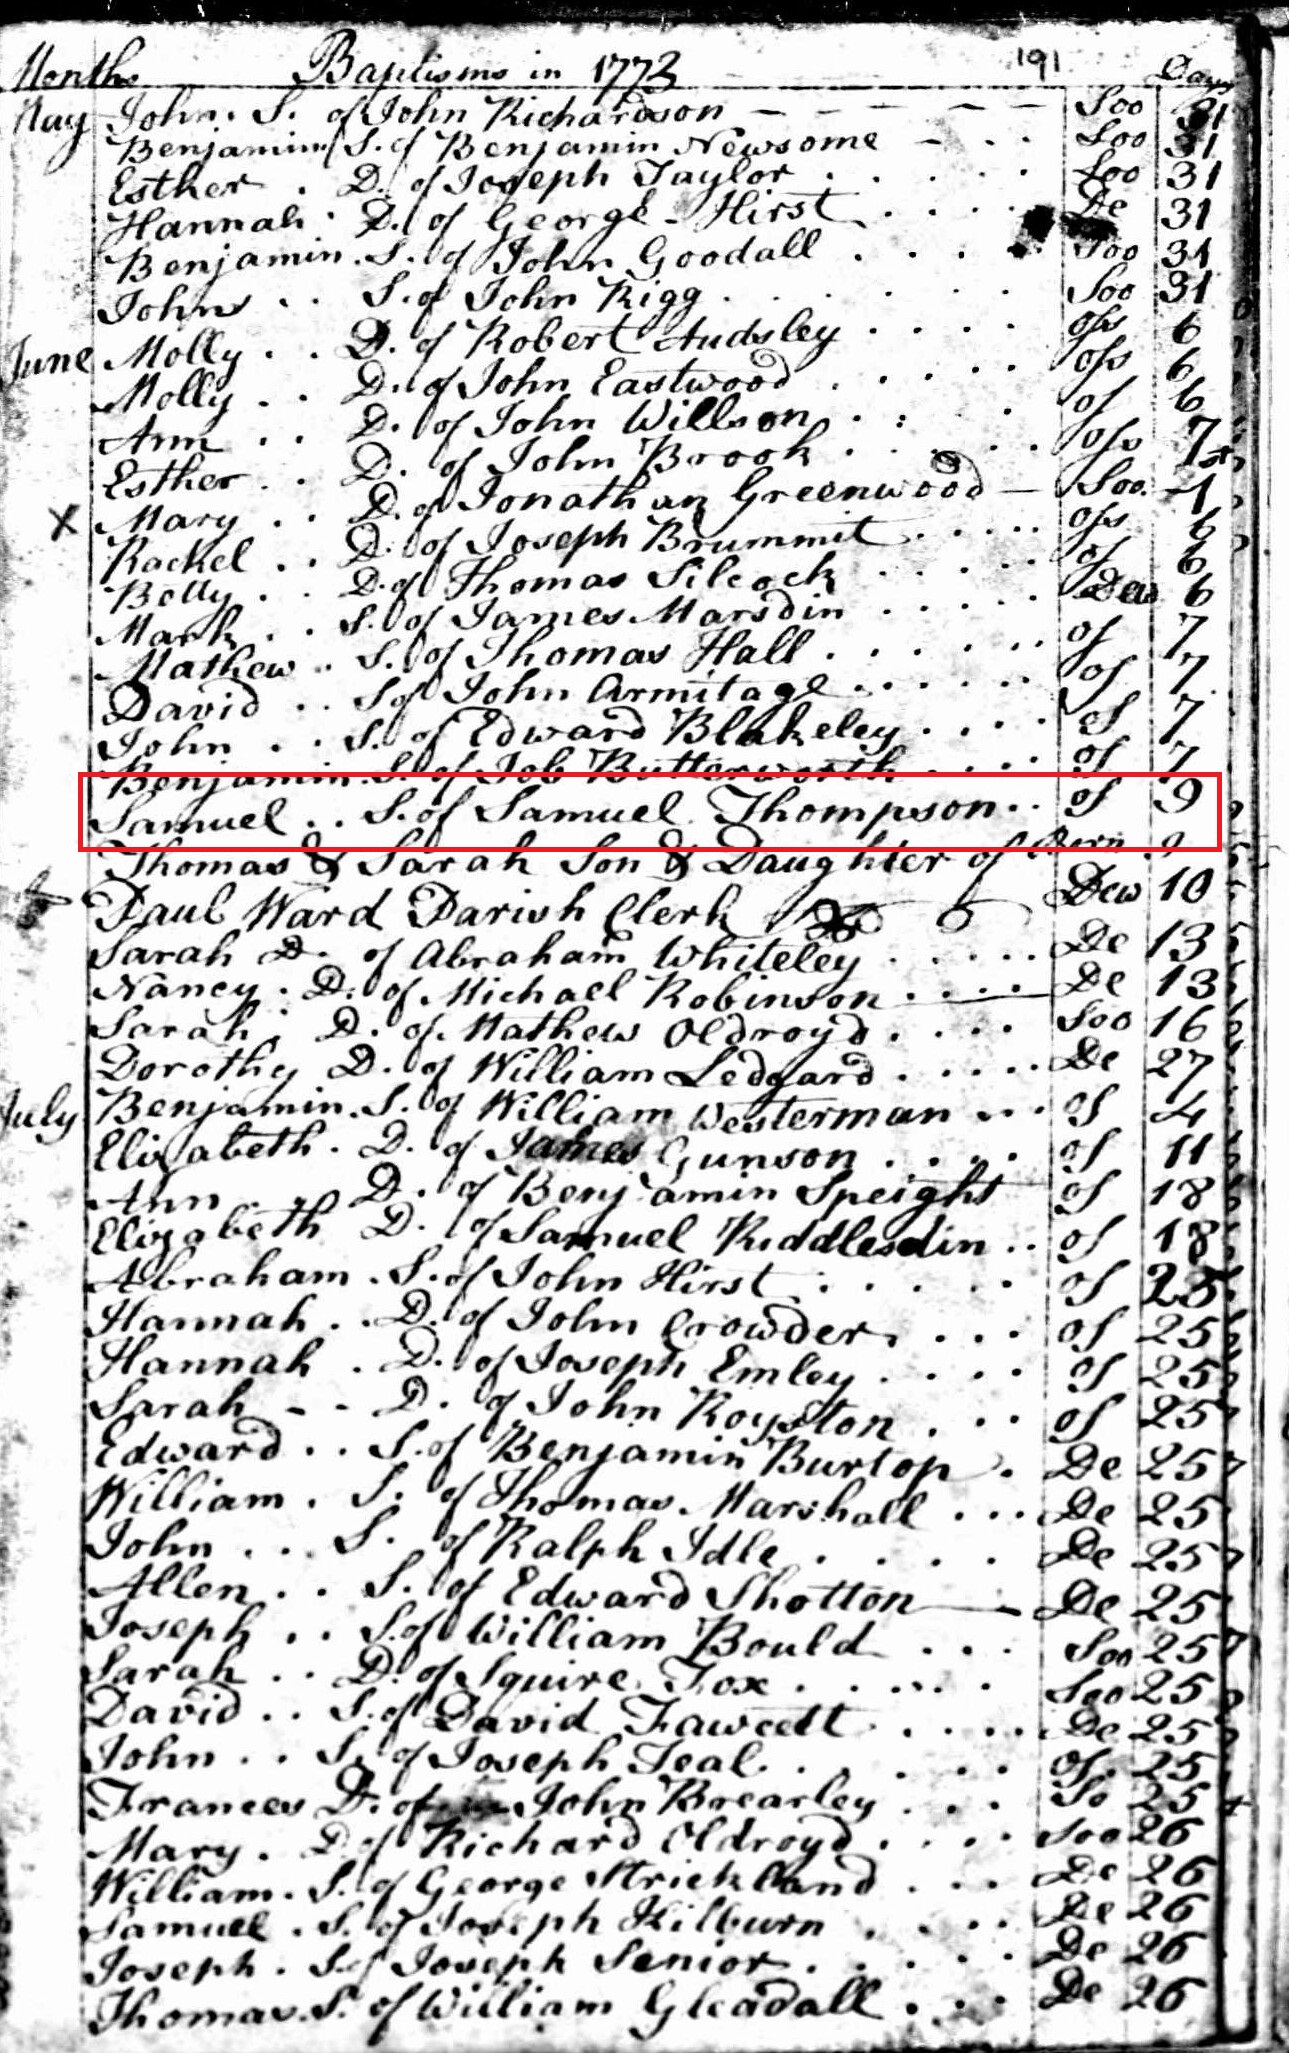 Months Baptisms in 1773 191 Days
May John. S. of John Richardson Soo 31
Benjamin S. of Benjamin Newsome Soo 31
Esther D. of Joseph Taylor Soo 31
Hannah D. of George Hirst De 31
Benjamin. S. of John Goodall Soo 31
John S. of John Rigg Soo 31
June Molly D. of Robert Audsley oss 6
Molly D. of John Eastwood oss 6
Ann D. of John Willson of 6
Esther D. of John Brook oss 7
X Mary D. of Jonathan Greenwood Soo. 1
Rachel D. of Joseph Brummit oss 6
Betty D. of Thomas Silcock of 6
Mark S. of James Marsdin Dew 6
Mathew S. of Thomas Hall of 7
David S of John Armitage of 7
John S. of Edward Blakeley of 7
Benjamin S. of Job Butterworth of 7
Samuel S. of Samuel Thompson of 9
Thomas & Sarah Son & Daughter of Born 9
Paul Ward Parish Clerk Dew 10
Sarah D. of Abraham Whiteley De 13
Nancy. D. of Michael Robinson De 13
Sarah D. of Mathew Oldroyd Soo 16
Dorothy D. of William Ledgard De 27
July Benjamin. S. of William Westerman of 4
Elizabeth. D. of James Gunson of 11
Ann D. of Benjamin Speight of 18
Elizabeth D. of Samuel Riddlesdin of 18
Abraham. S. of John Hirst of 25
Hannah D. of John Crowder of 25
Hannah D. of Joseph Emley of 25
Sarah D. of John Royston of 25
Edward S. of Benjamin Burtop De 25
William. S. of Thomas Marshall De 25
John S. of Ralph Idle De 25
Allen S. of Edward Shotton De 25
Joseph S. of William Bould Soo 25
Sarah D. of Squire Fox Soo 25
David S. of David Fawcett De 25
John S. of Joseph Teal of 25
Frances D. of John Brearley So 25
Mary. D of Richard Oldroyd Soo 26
William. S. of George Strickland De 26
Samuel. S. of Joseph Kilburn De 26
Joseph. S. of Joseph Senior De 26
Thomas. S. of William Gleadall De 26